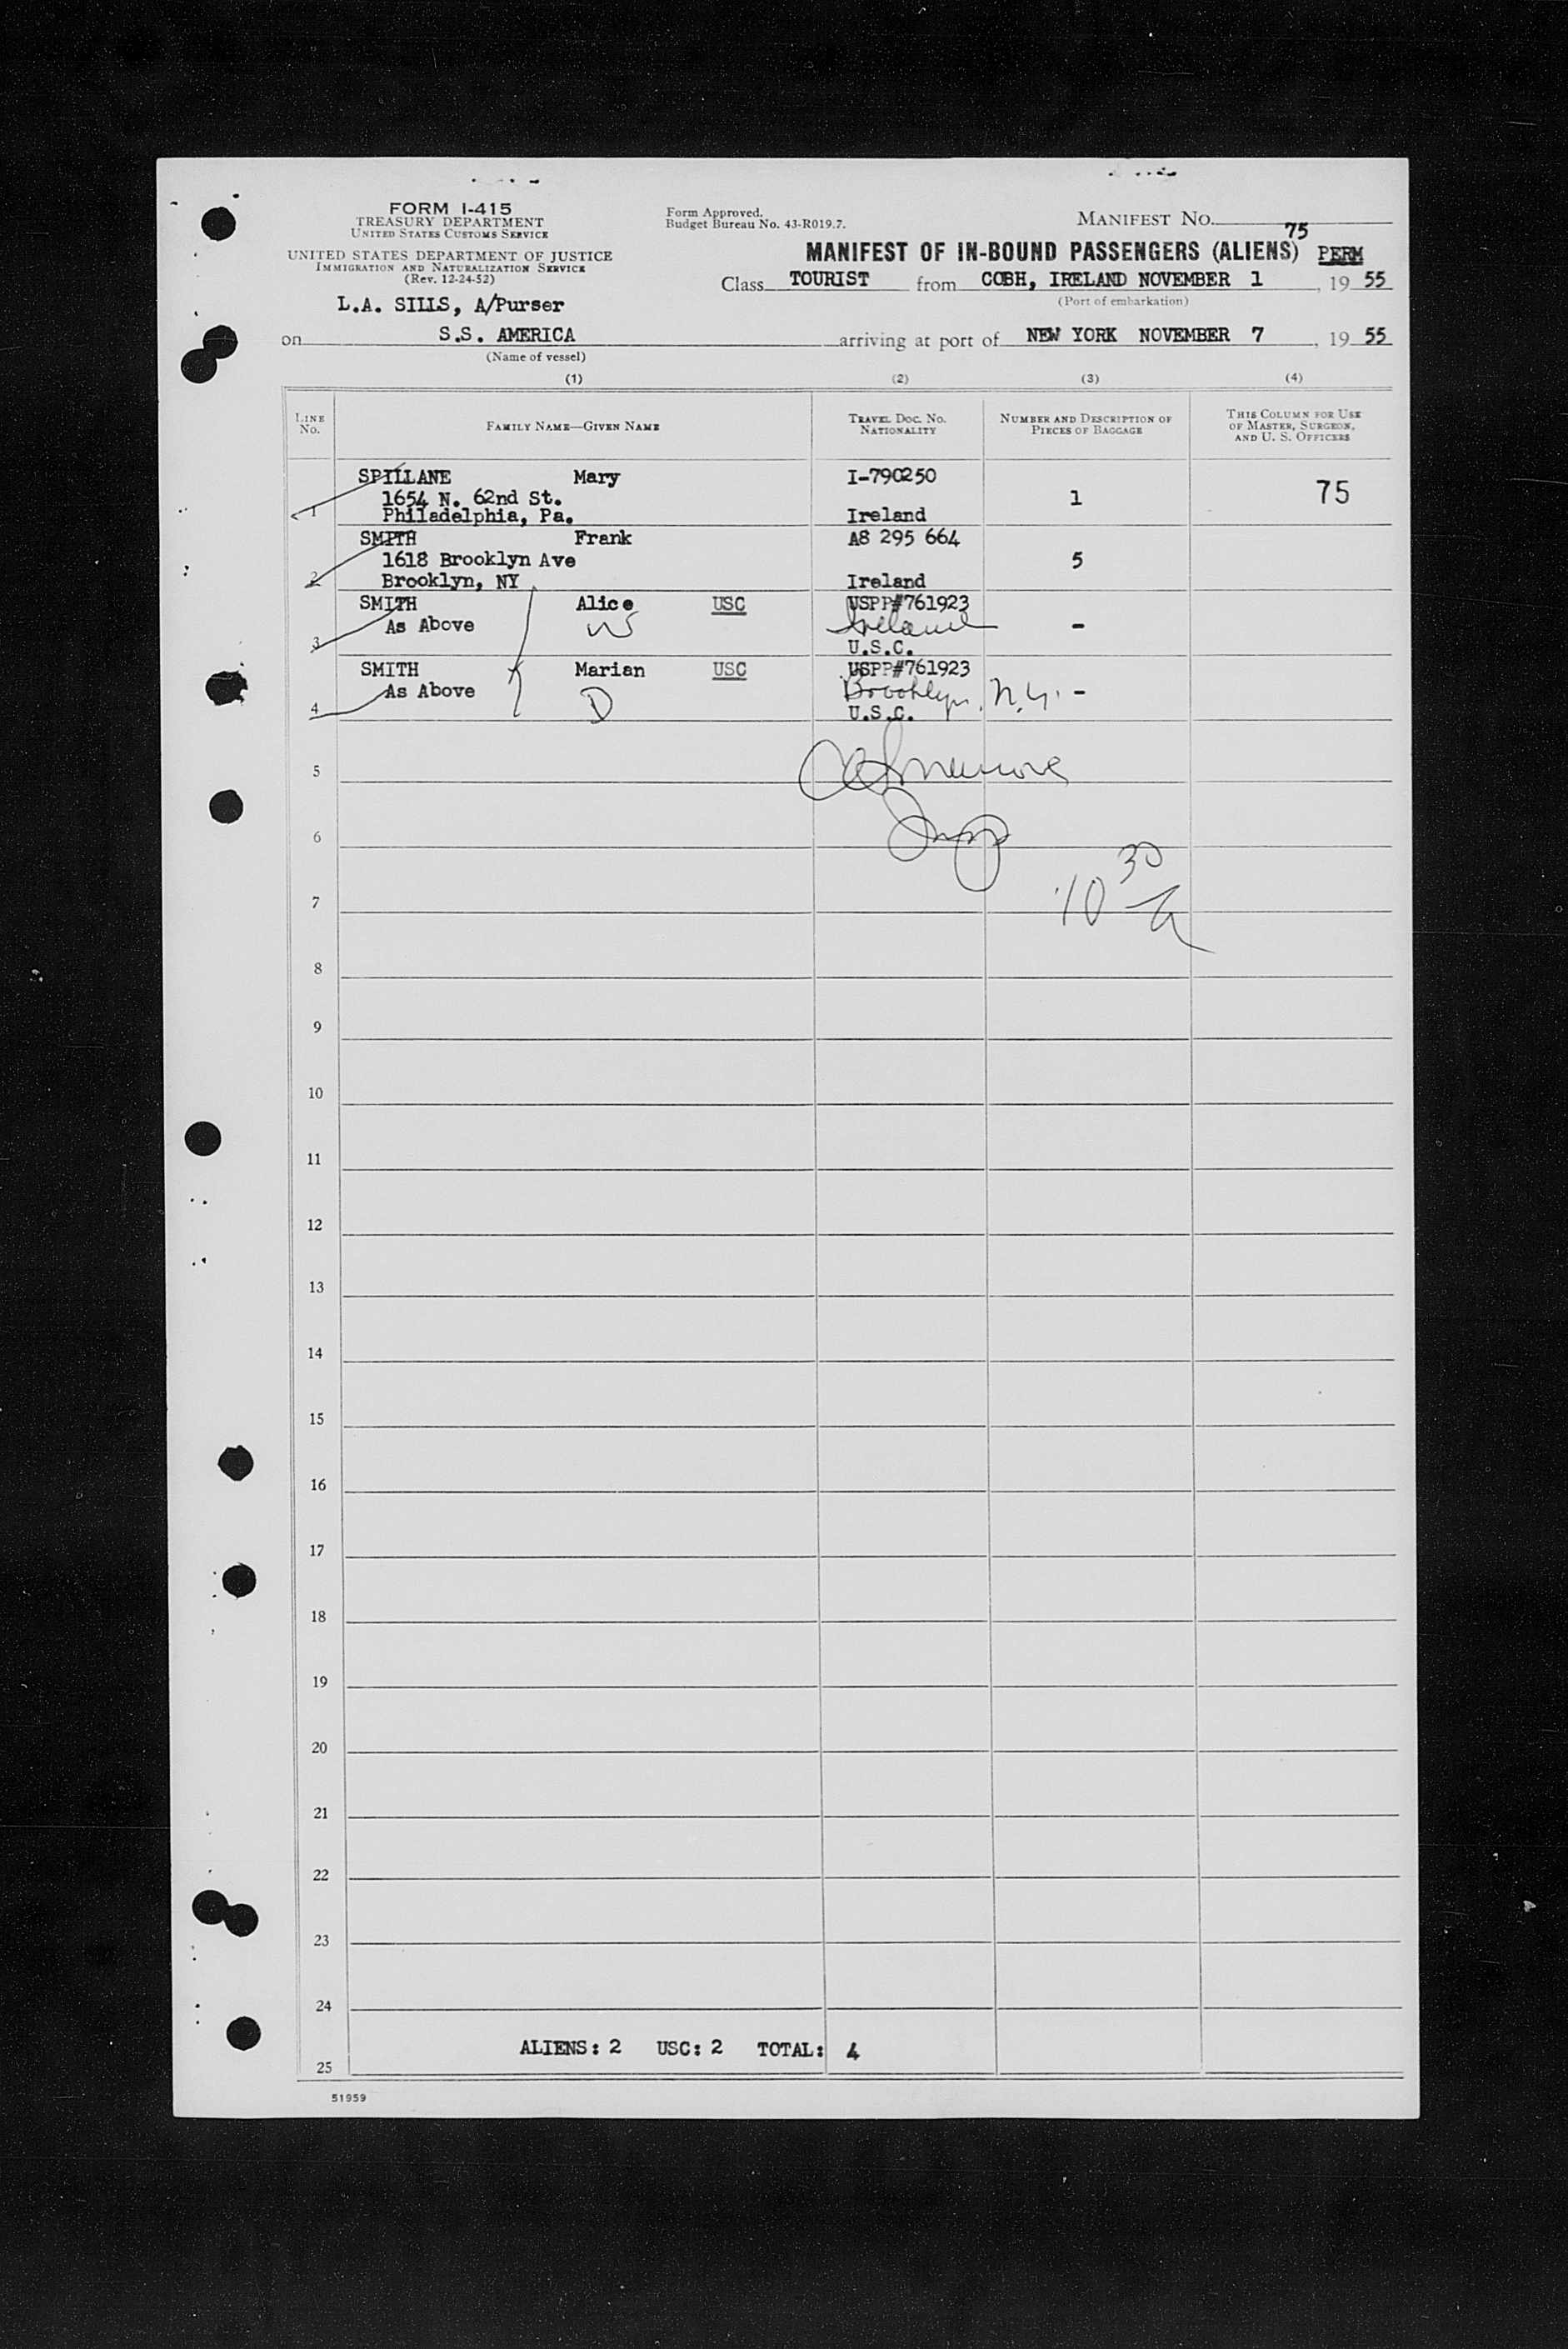 FORM I-415
TREASURY DEPARTMENT
UNITED STATES CUSTOMS SERVICE
UNITED STATES DEPARTMENT OF JUSTICE
IMMIGRATION AND NATURALIZATION SERVICE
(Rev. 12-24-52)
Form Approved.
Budget Bureau No. 43-R019.7.
MANIFEST NO.
75
MANIFEST OF IN-BOUND PASSENGERS (ALIENS) PERM
Class TOURIST from COBH, IRELAND NOVEMBER 1, 19 55
(Port of embarkation)
L.A. SILLS, A/Purser
on S.S. AMERICA arriving at port of NEW YORK NOVEMBER 7, 19 55
(Name of vessel)
(1) (2) (3) (4)
LINE NO. FAMILY NAME—GIVEN NAME TRAVEL DOC. NO. NATIONALITY NUMBER AND DESCRIPTION OF PIECES OF BAGGAGE THIS COLUMN FOR USE OF MASTER, SURGEON, AND U. S. OFFICERS
SPILLANE Mary I-790250
1654 N. 62nd St. 1 75
1 Philadelphia, Pa. Ireland
SMITH Frank A8 295 664
1618 Brooklyn Ave 5
2 Brooklyn, NY Ireland
SMITH Alice USC USPP#761923
As Above W Ireland -
3 U.S.C.
SMITH Marian USC USPP#761923
As Above D Brooklyn, N.Y. -
4 U.S.C.
5
6
Insp
7
10 30 A
8
9
10
11
12
13
14
15
16
17
18
19
20
21
22
23
24
ALIENS: 2 USC: 2 TOTAL: 4
25
51959